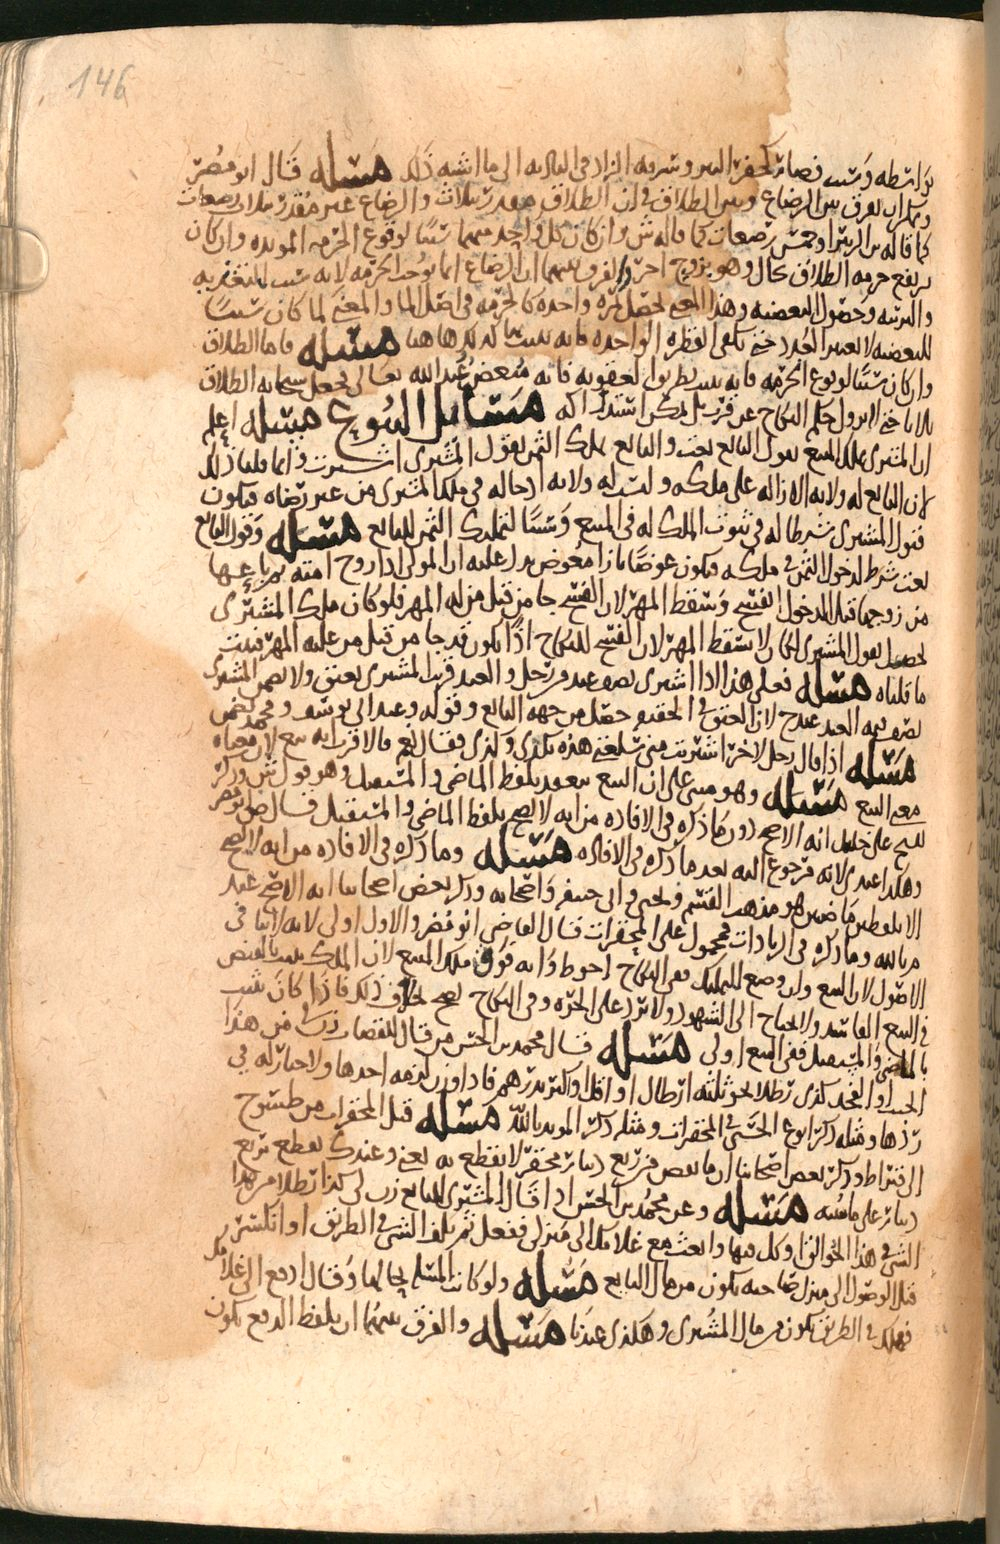 146
بواسطه وسبب فصار كحفر البير وشربه الزاد في الباديه الى ما اشبه ذلك مسله قال ابو مضر
ويمكن ان يفرق بين الرضاع وبين الطلاق في ان الطلاق مقدر بثلاث والرضاع غير مقدر بثلاث رضعات
كما قاله بن الزبير او خمس رضعات كما قاله ش وان كان كل واحد منهما سببا لوقوع الحرمه الموبده وان كان
يرفع حرمه الطلاق بحال وهو بزوج اخر والفرق بينهما ان الرضاع انما يوجب الحرمه لانه سبب للتغذيه
والتربيه وحصول البعضيه وهذا المعنى يحصل بمره واحده كالحرمه في اصل الما والمعنى لما كان سببا
للبعضيه لا يعتبر العدد حتى يكفي القطره الواحده فانه يثبت بها كذلك هاهنا مسله فاما الطلاق
وان كان سببا لوقوع الحرمه فانه يثبت بطريق العقوبه فانه مبغض عند الله تعالى فجعل سبحانه الطلاق
ثلاثا حتى لا يزول حكم النكاح عن قرب بل يمكن استدراكه مسائل البيوع مسله اعلم
ان المشتري يملك المبيع بقول البايع بعت والبايع يملك الثمن بقول المشتري اشتريت وانما قلنا ذلك
لان البايع له ولايه الازاله على ملكه وليست له ولايه ادخاله في ملك المشتري من غير رضاه فيكون
قبول المشتري شرطا له في ثبوت الملك له في المبيع وسببا لتمليك الثمن للبايع مسله وقول البايع
بعت شرط لدخول الثمن في ملكه فيكون عوضا بازا معوض يدل عليه ان المولى اذا زوج امته ثم باعها
من زوجها قبل الدخول انفسخ وسقط المهر لان الفسخ جا من قبل من له المهر فلو كان ملك المشتري
يحصل بقول المشتري لكان لا يسقط المهر لان الفسخ للنكاح اذا يكون قد جا من قبل من عليه المهر فثبت
ما قلناه مسله فعلى هذا اذا اشترى نصف عبد من رجل والعبد قريب المشتري يعتق ولا يضمن المشتري
نصف قيمه العبد عند ح لان العتق في الحقيقه حصل من جهه البايع وقوله وعند ابي يوسف ومحمد يضمن
مسله اذا قال رجل لاخر اشتريت مني سلعتي هذه بكذا وكذا فقال نعم فالاقرب انه بيع لان معناه
معنى البيع مسله وهو مبني على ان البيع ينعقد بلفظ الماضي والمستقبل وهو قول ش وذكر
الشيخ علي خليل انه الاصح دون ما ذكره في الافاده من انه لا يصح بلفظ الماضي والمستقبل قال ابو مضر
وهكذا عندي لانه مرجوع اليه بعد ما ذكره في الافاده مسله وما ذكره في الافاده من انه لا يصح
الا بلفظين ماضيين هو مذهب القسم ويحيى وابي حنيفه واصحابه وذكر بعض اصحابنا انه الاصح عند
م بالله وما ذكره في الزيادات محمول على المحقرات قال القاضي ابو مضر والاول اولى لانه لاتنافي
الاصول لان البيع وان وضع للتمليك ففي النكاح احوط وانه فوق ملك المبيع لان الملك يثبت بالقبض
في البيع الفاسد ولا يحتاج الى الشهود ولا ترد على الحره وفي النكاح يصح بخلاف ذلك فاذا كان يثبت
بالماضي والمستقبل ففي البيع اولى مسله قال محمد بن الحسن من قال للقصاب زن لي من هذا
الجنب او الفخذ كذا رطلا نحو ثلثه ارطال او اقل او اكثر بدرهم فاذا وزن لزمه اخذها ولا خيار له في
ردها ومثله ذكر ابو ع الحسني في المحقرات ومثله ذكر المويد بالله مسله قيل المحقرات من طسوج
الى قيراط وذكر بعض اصحابنا ان ما نقص من ربع دينار محقر لا يقطع به يعني وعندك يقطع بربع
دينار على ما بينه مسله وعن محمد بن الحسن اذا قال المشتري للبايع زن لي كذا رطلا من هذا
الشي في هذا الجوالق او كل فيها وابعث مع غلامك الى منزلي ففعل ثم تلف الشي في الطريق او انكسر
قبل الوصول الى منزل صاحبه يكون من مال البايع مسله ولو كانت المسله بحالها وقال ادفع الى غلامك
فهلك في الطريق يكون من مال المشتري وهكذا عندنا مسله والفرق بينهما ان بلفظ الدفع يكون